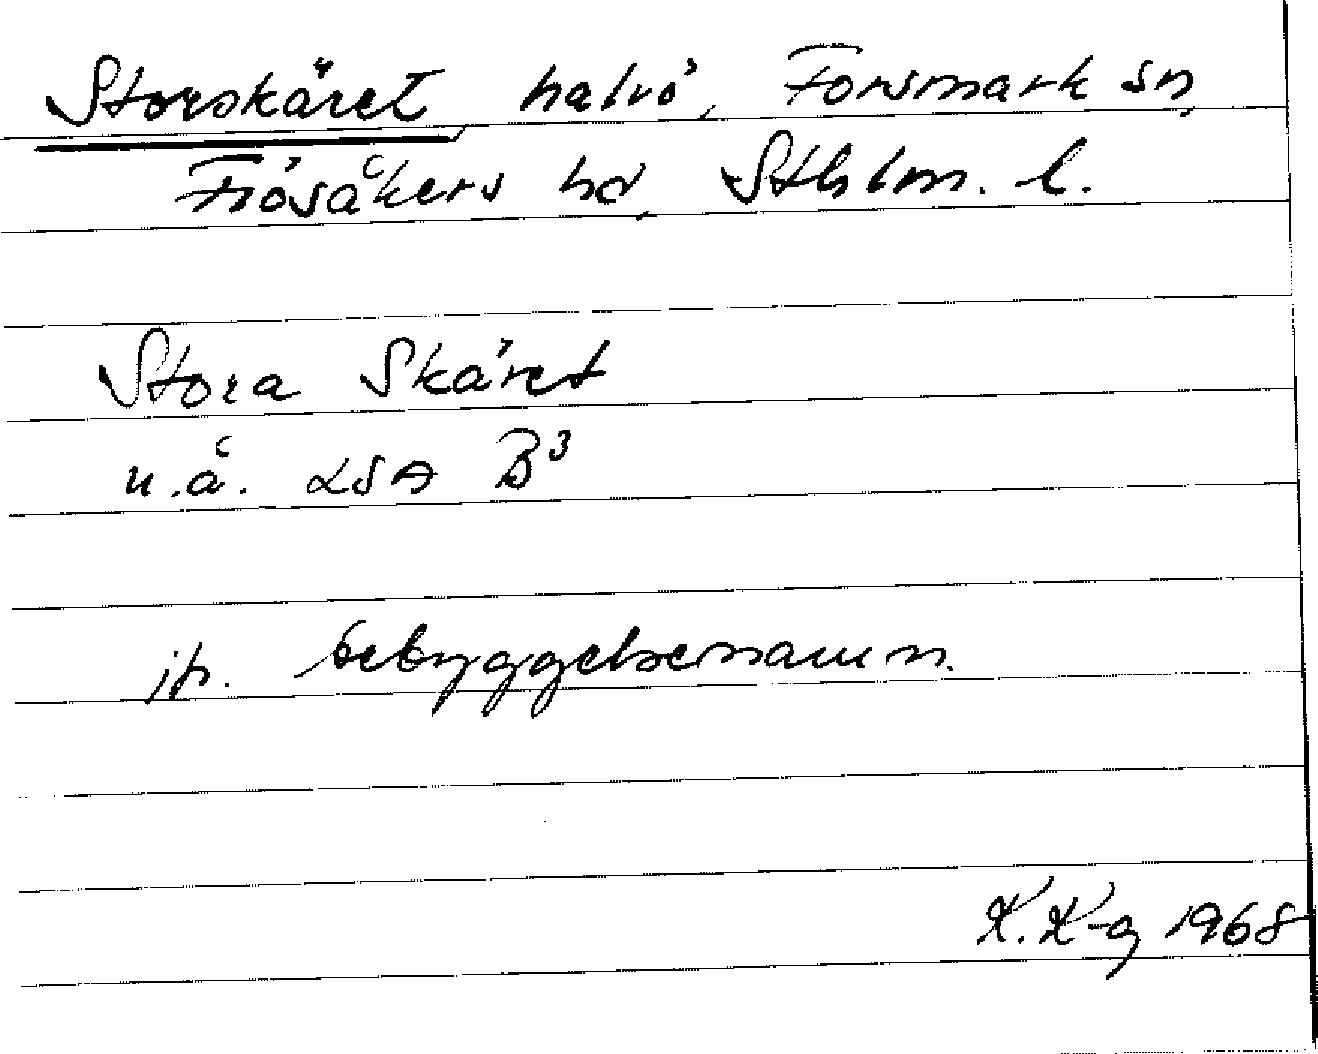 Storskäret, halvö, Forsmark sn,
Frösåkers hd, Sthlm. l.
Stora Skäret
u.å. LSA B³
jfr. bebyggelsenamn.
K.K-g 1968